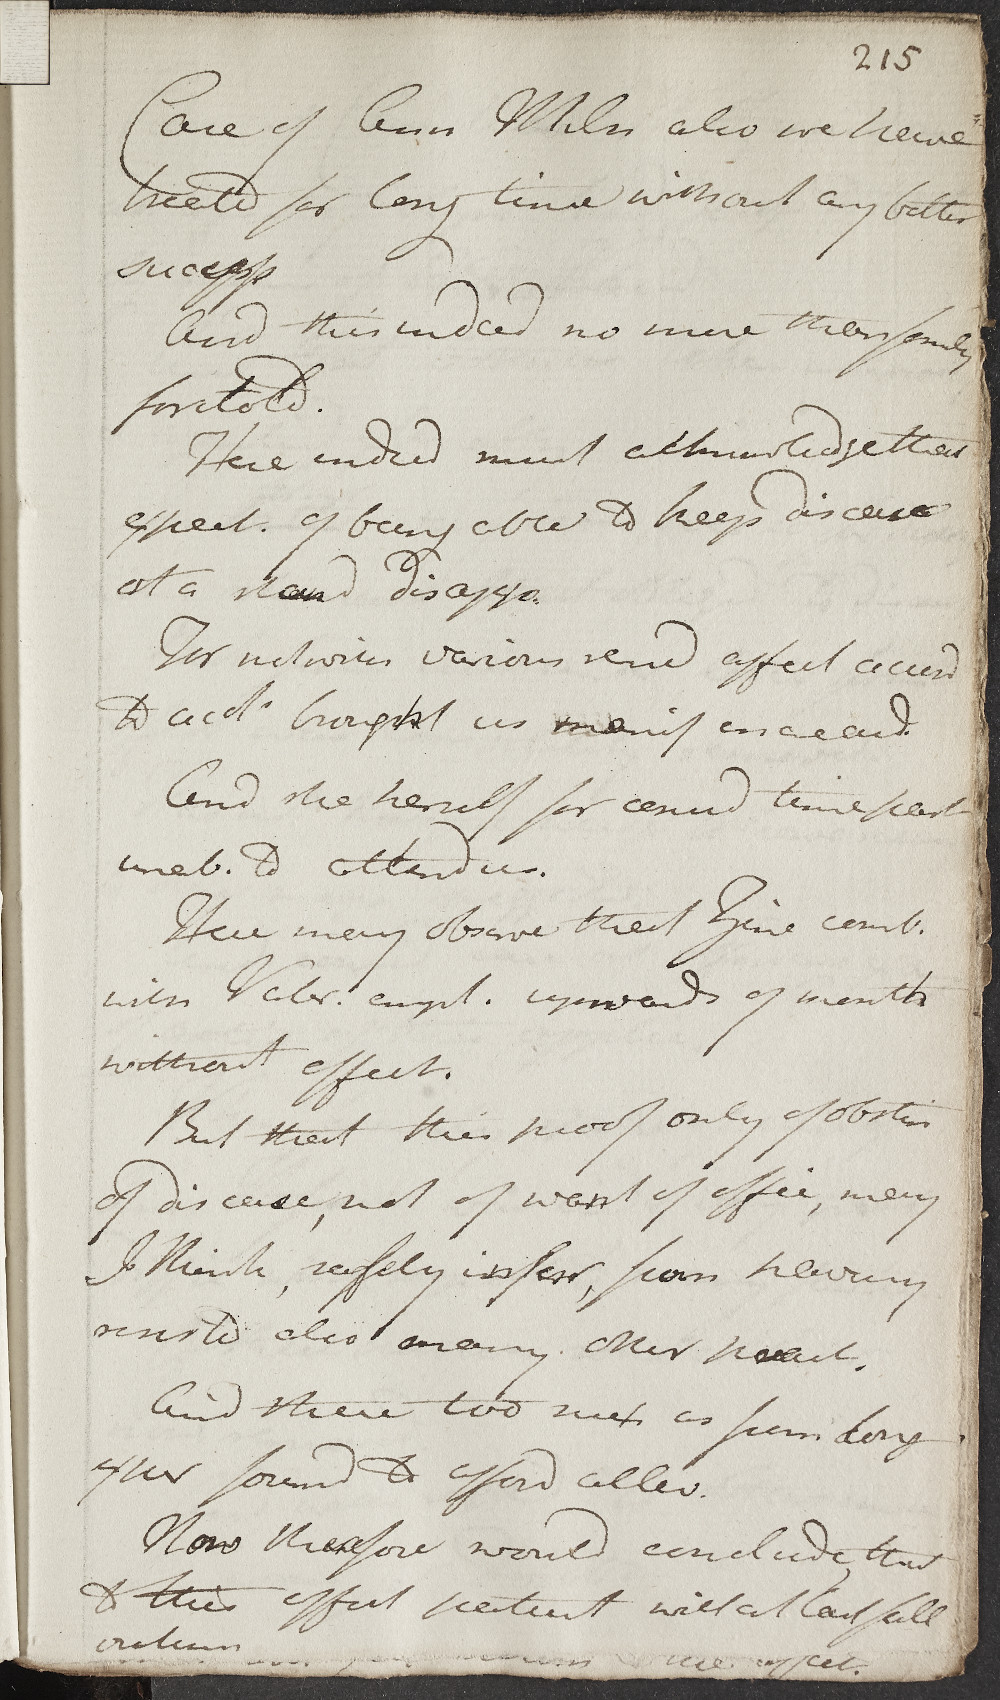 215
Case of Ann Miln also we have
treatd for long time without any better
success
And this indeed no more than formly
foretold.
Here indeed must acknowledge that
expect. of being able to keep disease
at a stand disappo.
For notwith various remd affect accord
to acct brought us manif
And she herself for consid time past
unab. to attend us.
Here may observe that Zinc comb.
with Valer. empl. upwards of month
without effect.
But that this proof only of obstin
of disease, not of want of effic, may
I think, safely infer, from having
resistd also many other pract.
And these too such as from long
exper found to afford allev.
Now therefore would conclude, that
to this effect patient will at last fall
victim
effect.